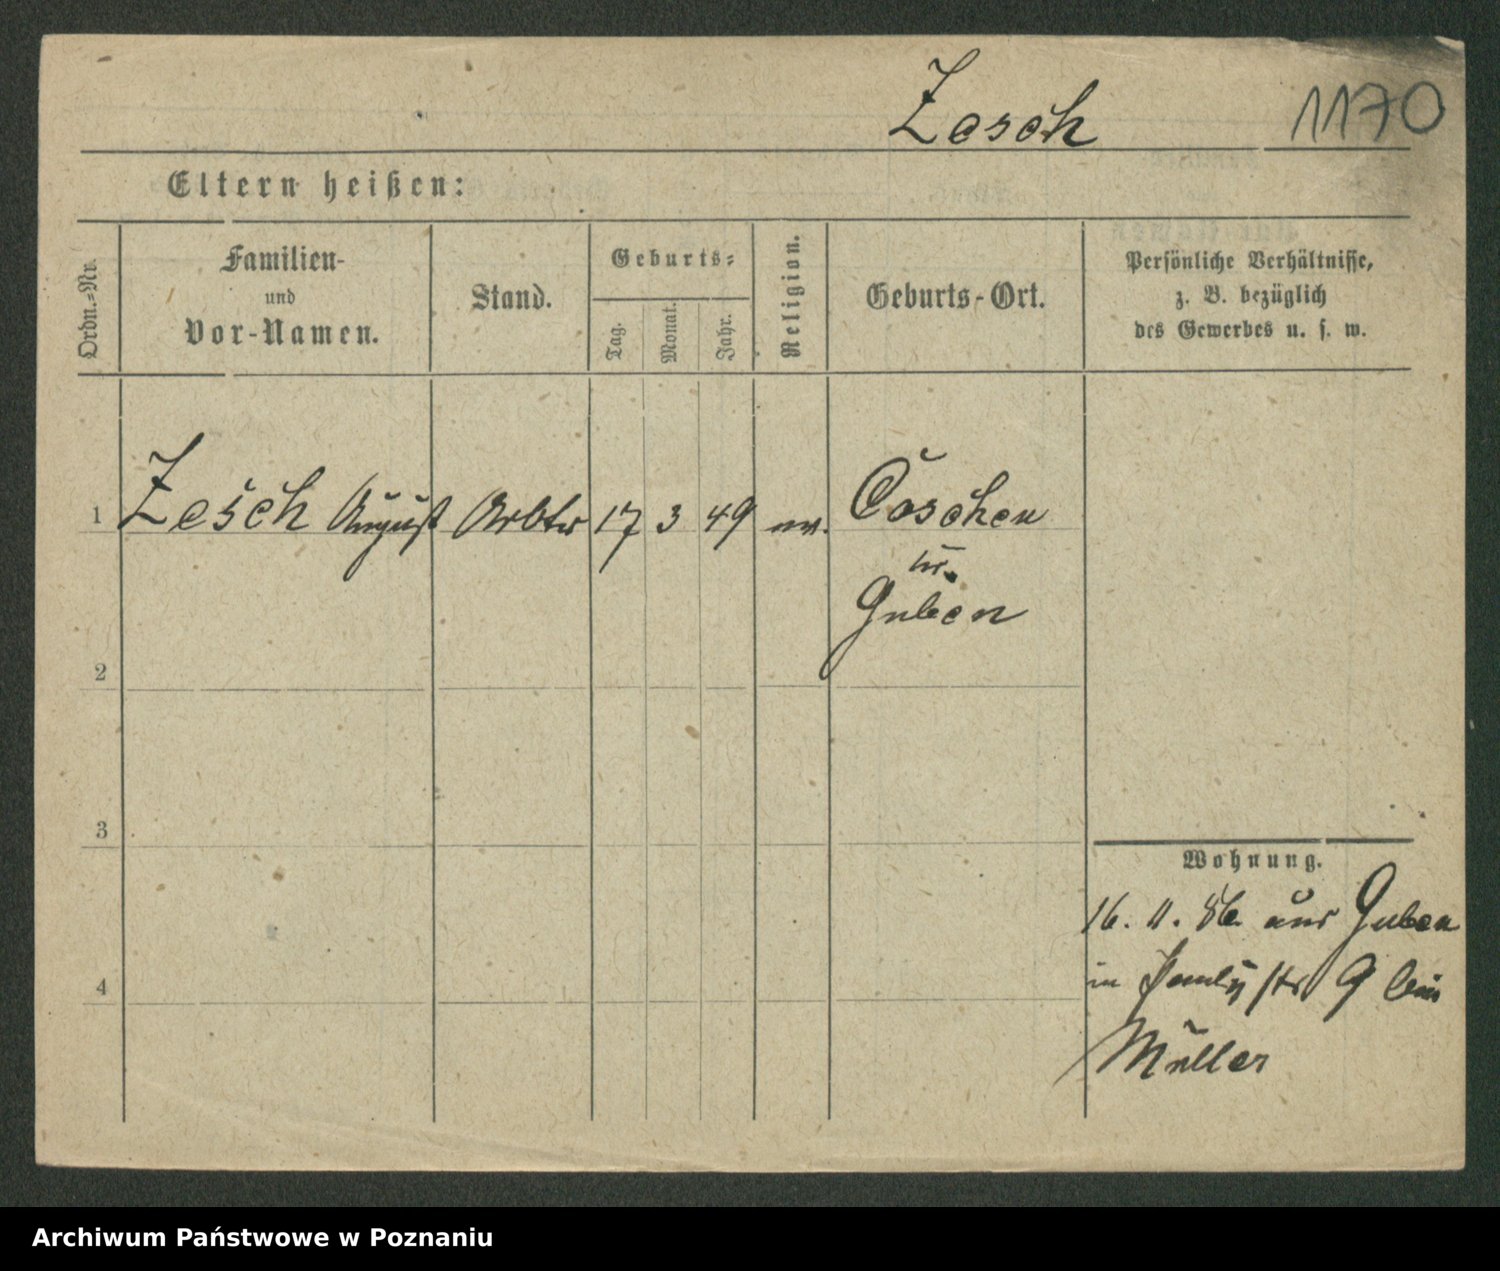 Zesch 1170
Eltern heißen:
Ordn.=Nr.
Familien-
und
Vor-Namen.
Stand.
Geburts=
Tag.
Monat.
Jahr.
Religion.
Geburts-Ort.
Persönliche Verhältnisse,
z. B. bezüglich
des Gewerbes u. s. w.
1 Zesch August Arbtr 17 3 49 ev. Coschen
Kr.
Guben
2
3
4
Wohnung.
16. 11. 86 aus Guben
in str 9 bei
Müller
Archiwum Państwowe w Poznaniu